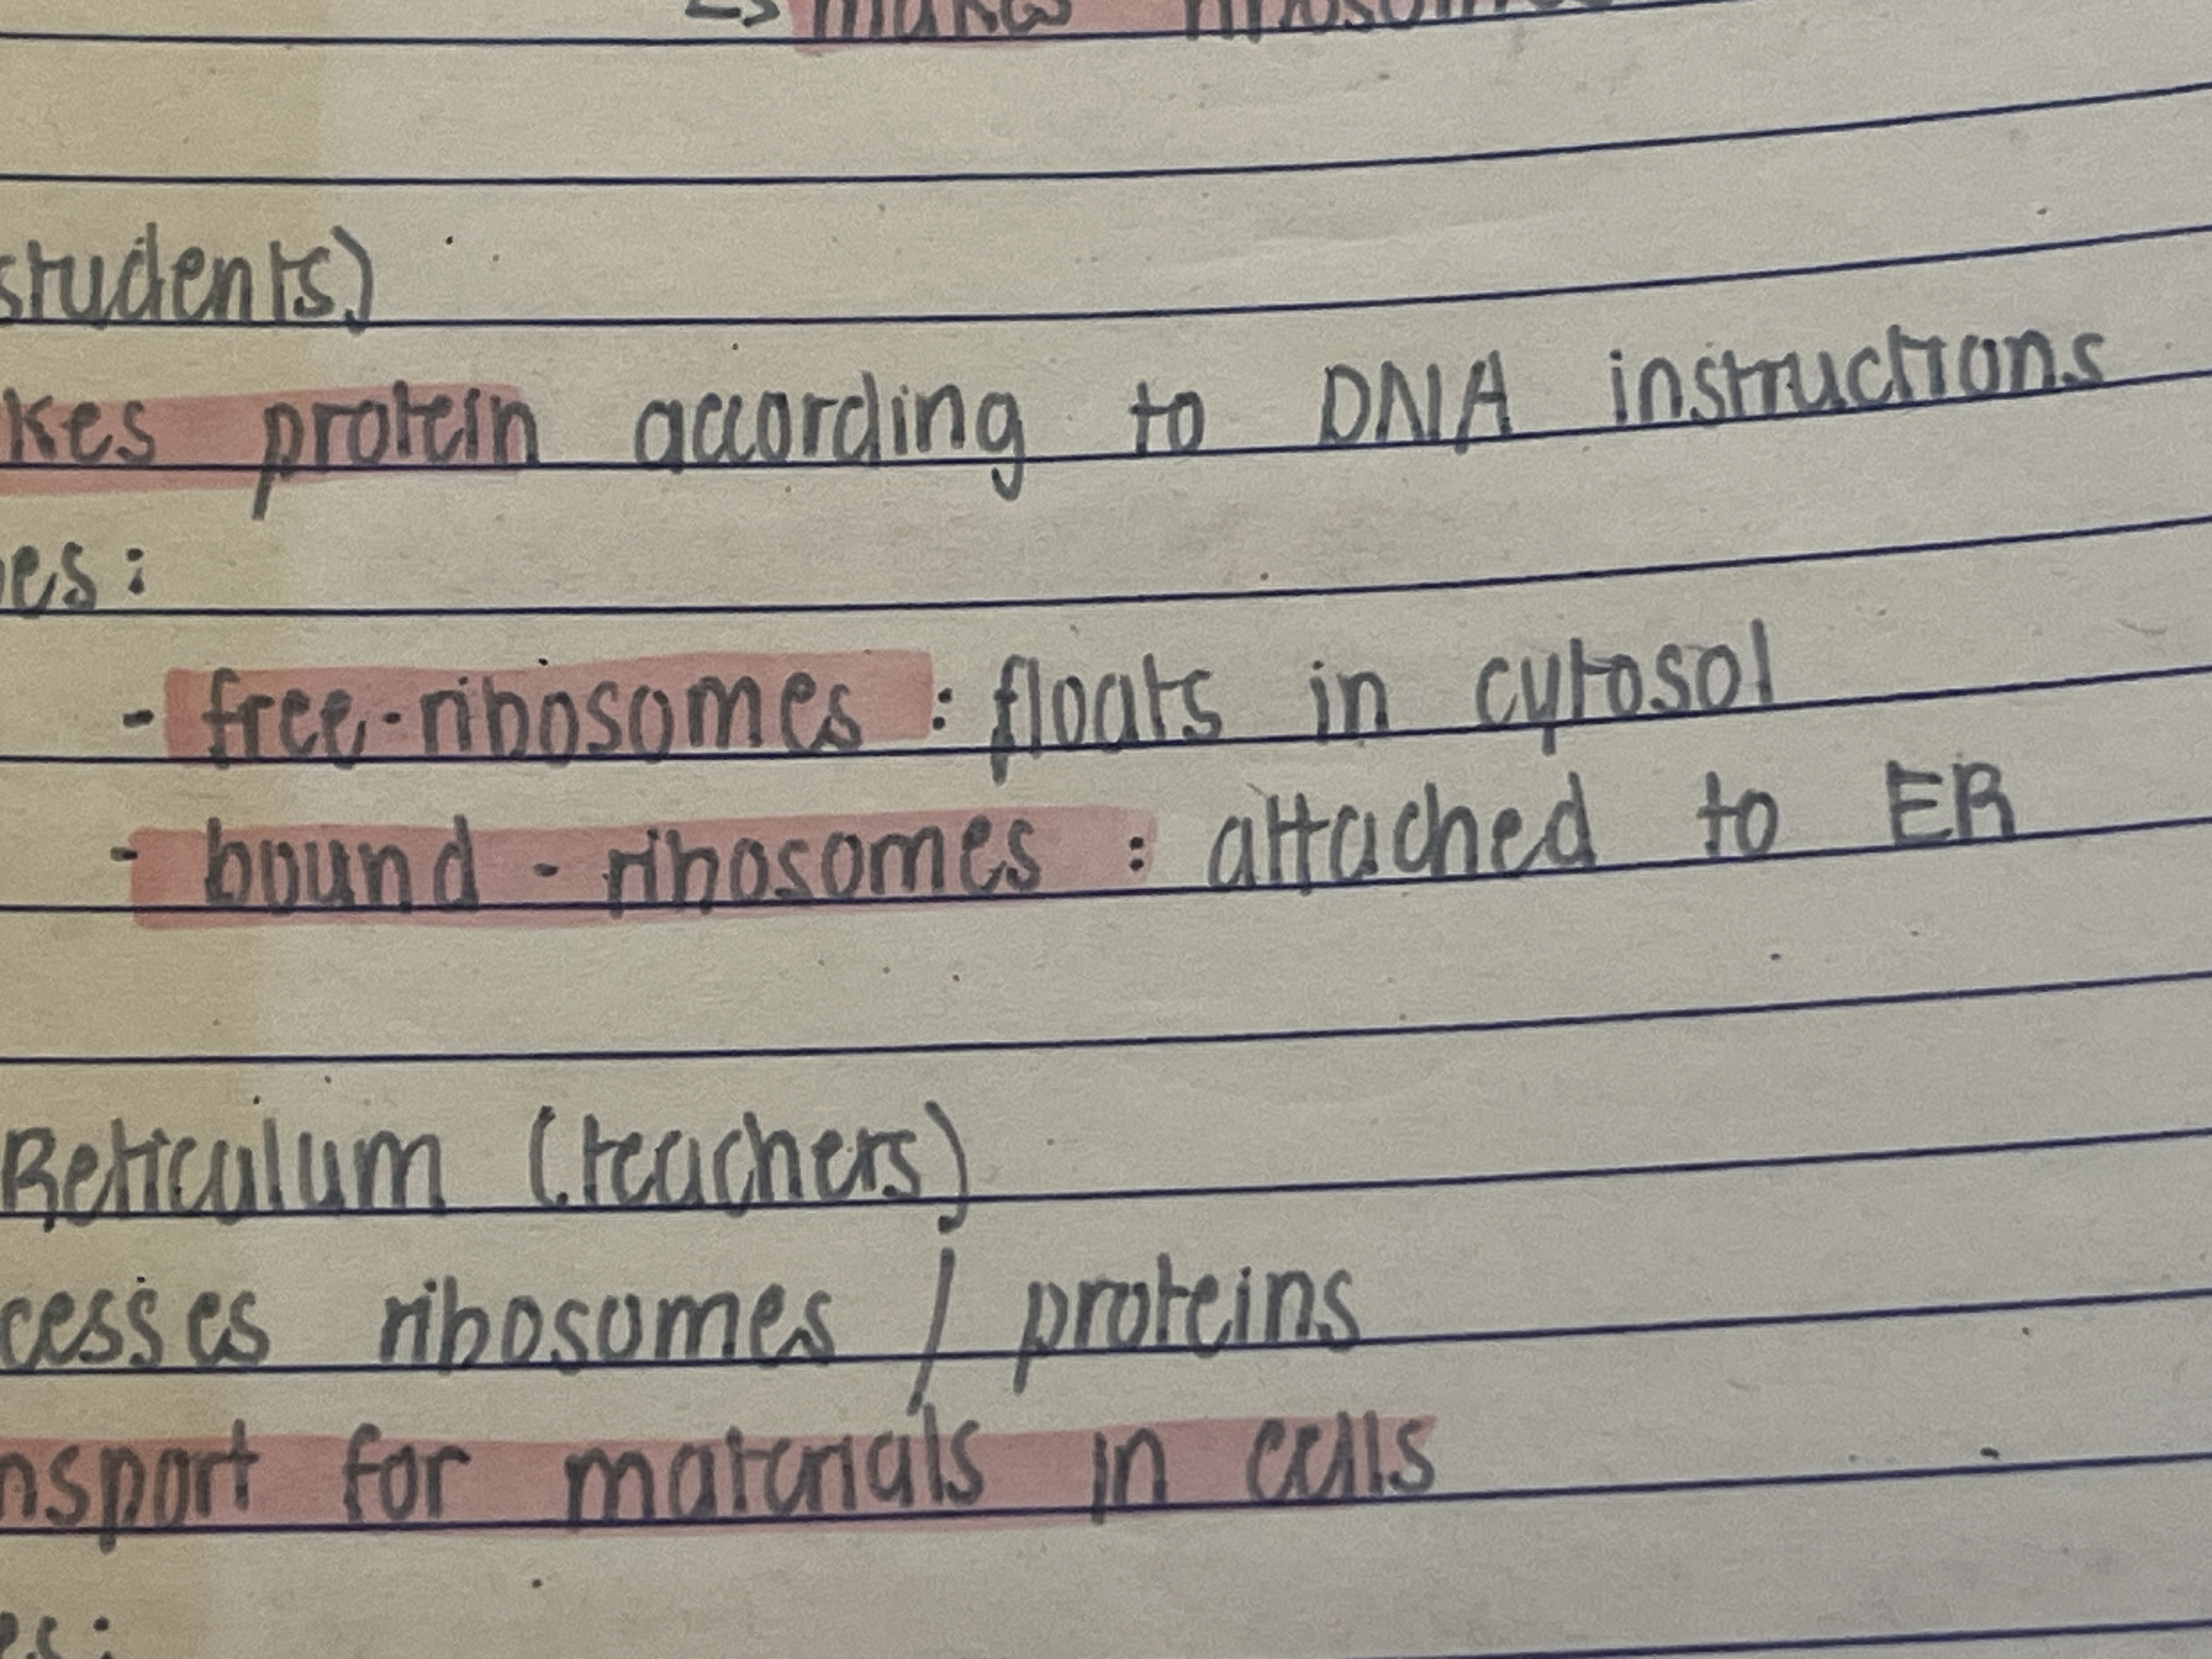 ↳ makes ribosomes
students)
kes protein according to DNA instructions
es:
- free-ribosomes : floats in cytosol
- bound - ribosomes : attached to ER
Reticulum (teachers)
cesses ribosomes / proteins
nsport for materials in cells
es: